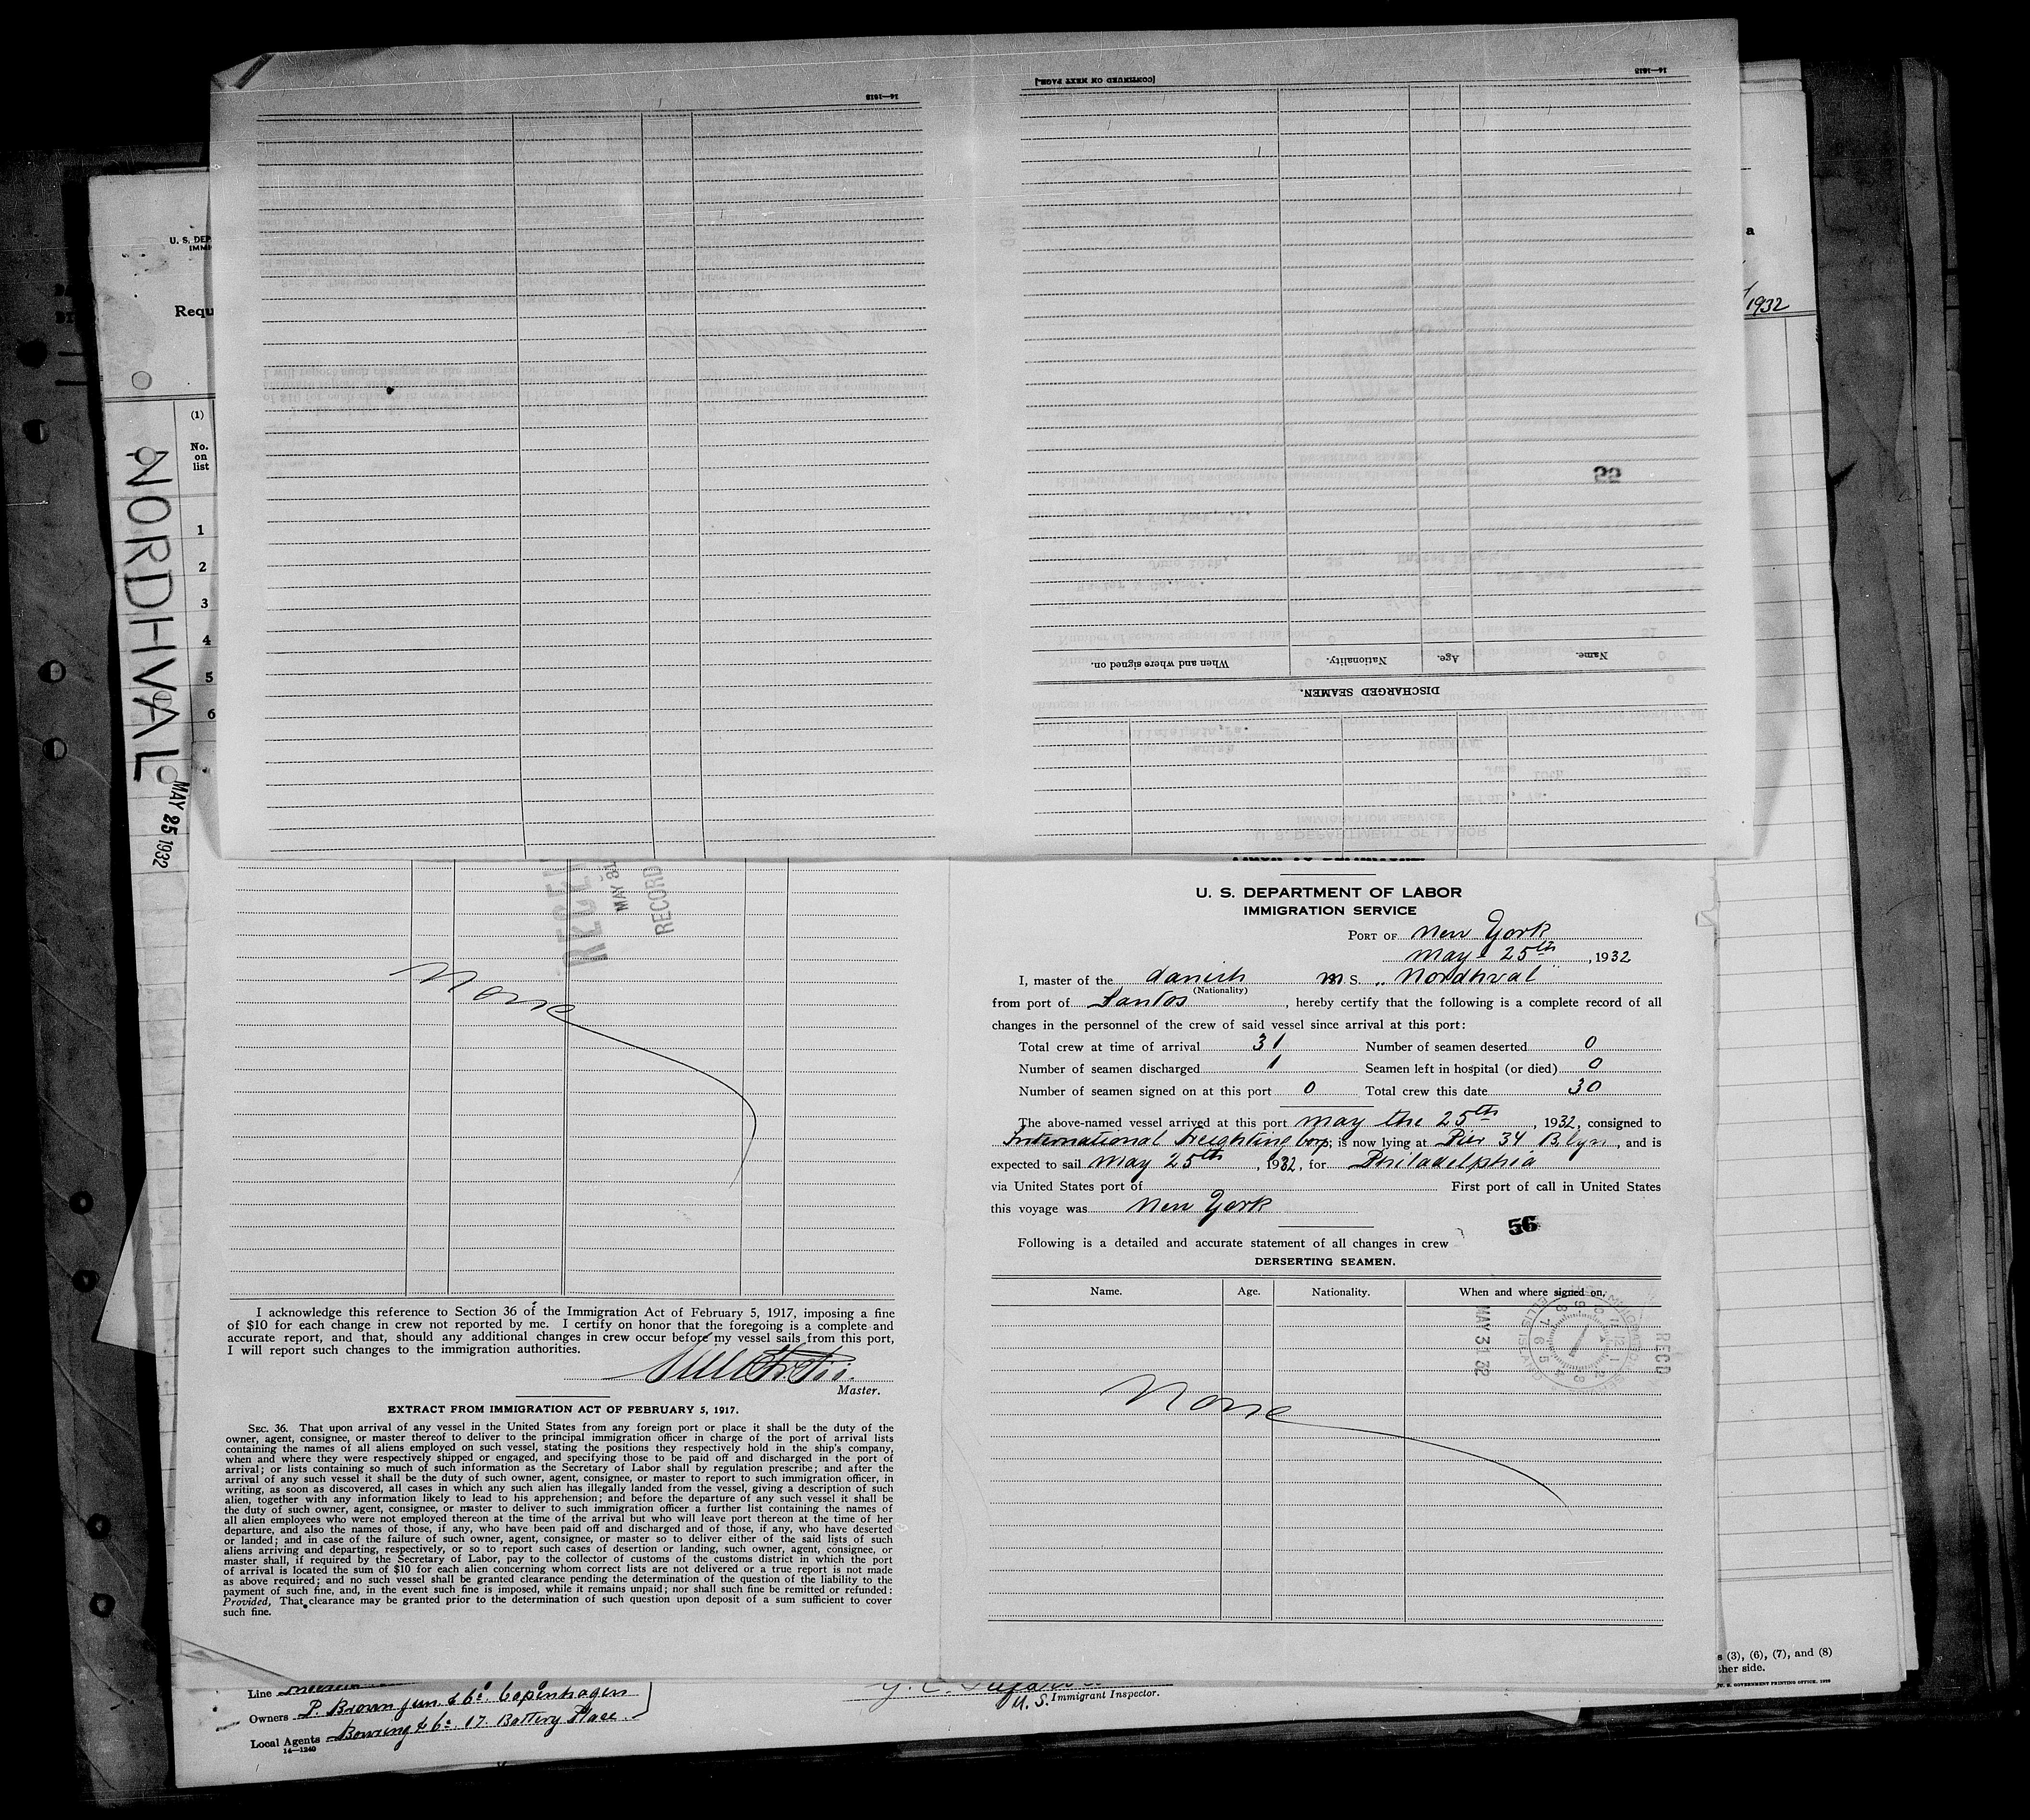 [CONTINUED ON NEXT PAGE.]
14—1618
14—1618
When and where signed on.
Nationality.
Age.
Name.
DISCHARGED SEAMEN.
U. S. DEP
IMMI
Requ
a
1932
(1)
No.
on
list
1
2
3
4
5
6
NORDHVAL
MAY 25 1932
MAY 31
RECORD
None
I acknowledge this reference to Section 36 of the Immigration Act of February 5, 1917, imposing a fine
of $10 for each change in crew not reported by me. I certify on honor that the foregoing is a complete and
accurate report, and that, should any additional changes in crew occur before my vessel sails from this port,
I will report such changes to the immigration authorities.
Master.
EXTRACT FROM IMMIGRATION ACT OF FEBRUARY 5, 1917.
SEC. 36. That upon arrival of any vessel in the United States from any foreign port or place it shall be the duty of the
owner, agent, consignee, or master thereof to deliver to the principal immigration officer in charge of the port of arrival lists
containing the names of all aliens employed on such vessel, stating the positions they respectively hold in the ship's company,
when and where they were respectively shipped or engaged, and specifying those to be paid off and discharged in the port of
arrival; or lists containing so much of such information as the Secretary of Labor shall by regulation prescribe; and after the
arrival of any such vessel it shall be the duty of such owner, agent, consignee, or master to report to such immigration officer, in
writing, as soon as discovered, all cases in which any such alien has illegally landed from the vessel, giving a description of such
alien, together with any information likely to lead to his apprehension; and before the departure of any such vessel it shall be
the duty of such owner, agent, consignee, or master to deliver to such immigration officer a further list containing the names of
all alien employees who were not employed thereon at the time of the arrival but who will leave port thereon at the time of her
departure, and also the names of those, if any, who have been paid off and discharged and of those, if any, who have deserted
or landed; and in case of the failure of such owner, agent, consignee, or master so to deliver either of the said lists of such
aliens arriving and departing, respectively, or so to report such cases of desertion or landing, such owner, agent, consignee, or
master shall, if required by the Secretary of Labor, pay to the collector of customs of the customs district in which the port
of arrival is located the sum of $10 for each alien concerning whom correct lists are not delivered or a true report is not made
as above required; and no such vessel shall be granted clearance pending the determination of the question of the liability to the
payment of such fine, and, in the event such fine is imposed, while it remains unpaid; nor shall such fine be remitted or refunded:
Provided, That clearance may be granted prior to the determination of such question upon deposit of a sum sufficient to cover
such fine.
U. S. DEPARTMENT OF LABOR
IMMIGRATION SERVICE
PORT OF New York
May 25th, 1932
I, master of the danish M S. „Nordhval"
(Nationality)
from port of Santos, hereby certify that the following is a complete record of all
changes in the personnel of the crew of said vessel since arrival at this port:
Total crew at time of arrival 31 Number of seamen deserted 0
Number of seamen discharged 1 Seamen left in hospital (or died) 0
Number of seamen signed on at this port 0 Total crew this date 30
The above-named vessel arrived at this port May the 25th, 1932, consigned to
International Freighting Corp, is now lying at Pier 34 Blyn, and is
expected to sail May 25th, 1932, for Philadelphia
via United States port of First port of call in United States
this voyage was New York
56
Following is a detailed and accurate statement of all changes in crew
DERSERTING SEAMEN.
Name. Age. Nationality. When and where signed on.
MAY 31 32
REC'D
None
Line
Owners P. Brown jun. & Co. Copenhagen
Local Agents Bowring & Co. 17. Battery Place
14—1240
U. S. Immigrant Inspector.
s (3), (6), (7), and (8)
ther side.
U. S. GOVERNMENT PRINTING OFFICE